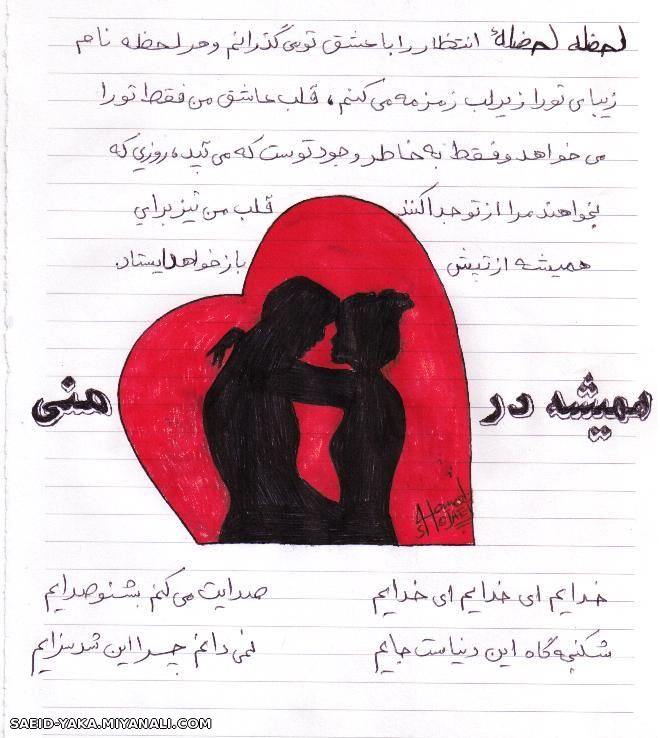 لحظه لحضۀ انتظار را با عشق تو می گذرانم و هر لحظه نام
زیبای تو را زیر لب زمزمه می کنم، قلب عاشق من فقط تو را
می خواهد و فقط به خاطر وجود توست که می تپد، روزی که
بخواهند مرا از تو جدا کنند قلب من نیز برای
همیشه از تپش باز خواهد ایستاد.
همیشه در منی
Hamed
خدایم ای خدایم ای خدایم صدایت می کنم بشنو صدایم
شکنجه گاه این دنیاست جایم نمی دانم چرا این شد سزایم
SAEID-YAKA.MIYANALI.COM